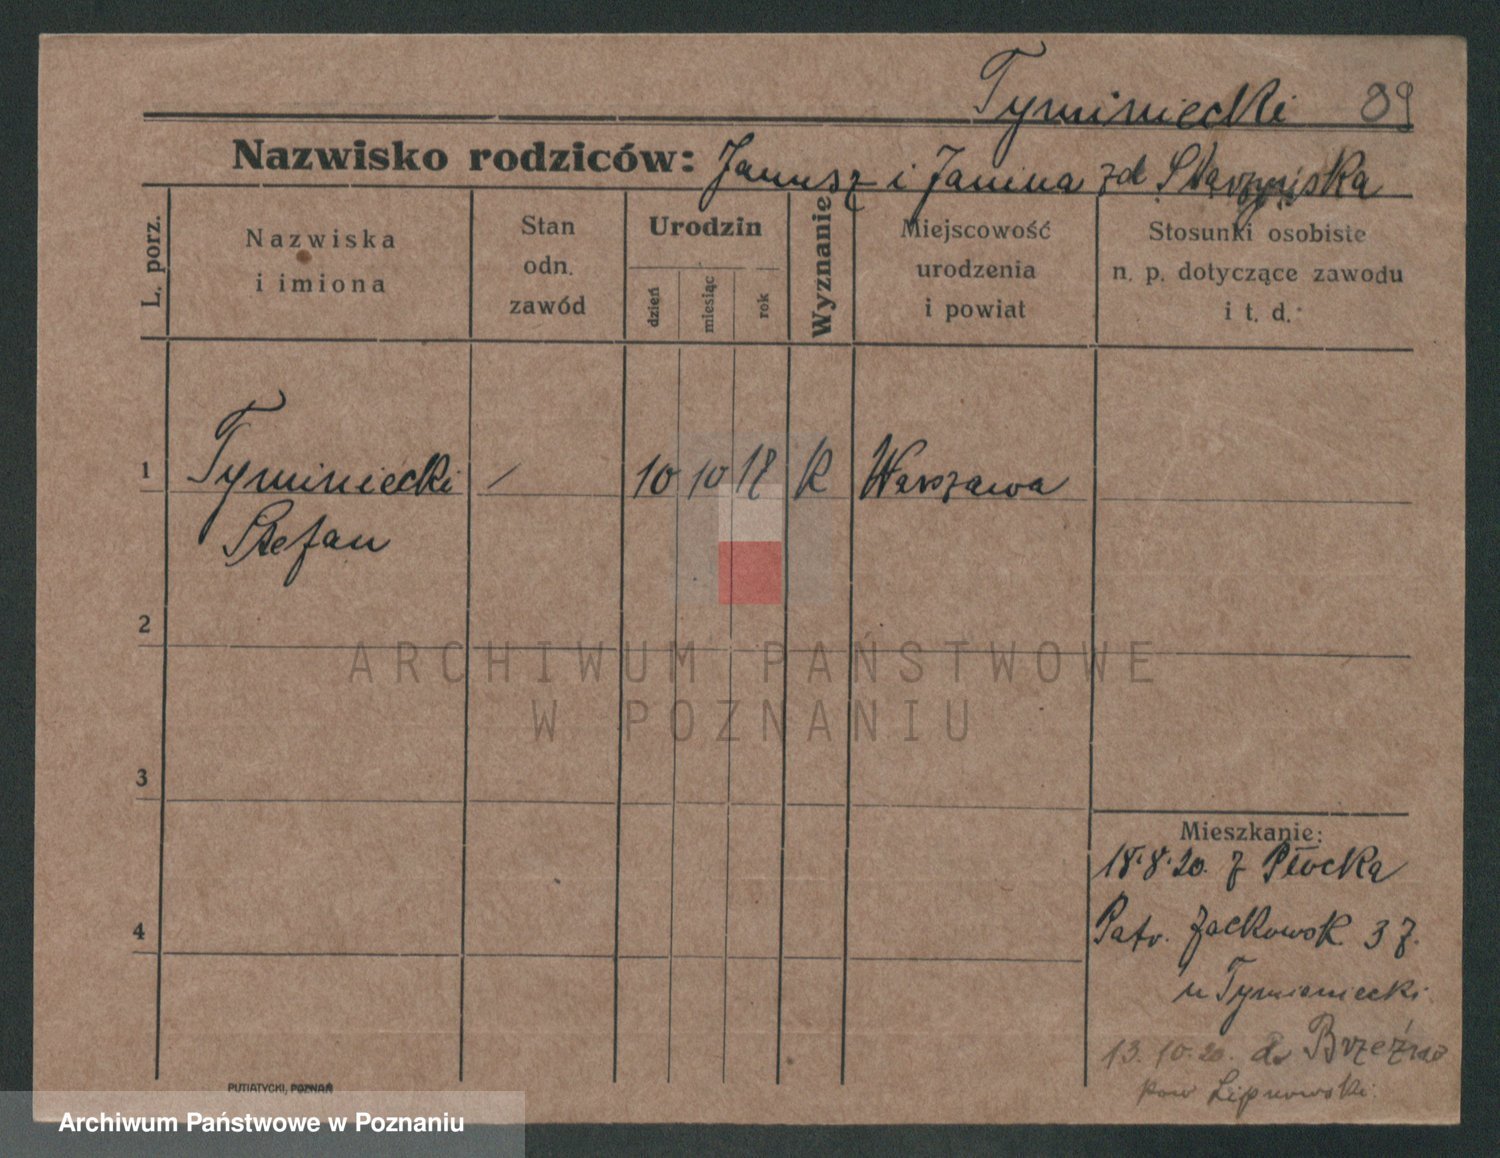 Tyminiecki 89
Nazwisko rodziców: Janusz i Janina zd Starzyńska
L. porz.
Nazwiska
i imiona
Stan
odn.
zawód
Urodzin
dzień
miesiąc
rok
Wyznanie
Miejscowość
urodzenia
i powiat
Stosunki osobiste
n. p. dotyczące zawodu
i t. d.
1 Tyminiecki / 10 10 18 K Warszawa
Stefan
2
3
4
Mieszkanie:
18.8.20. z Płocka
Patr. Jackowsk 37.
u Tymieniecki
13.10.20. do
pow Lipnowski.
PUTIATYCKI, POZNAŃ
ARCHIWUM PAŃSTWOWE
W POZNANIU
Archiwum Państwowe w Poznaniu